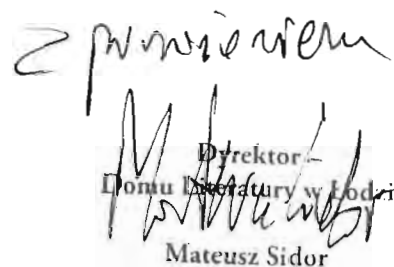 Z poważaniem
Dyrektor
Domu Literatury w Łodzi
Mateusz Sidor